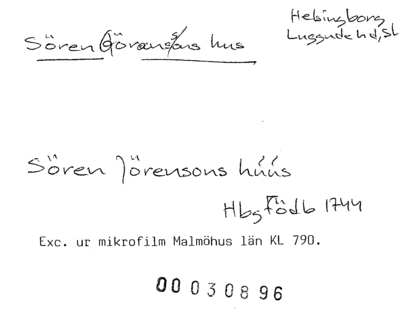 Sören Göranssons hus
Helsingborg
Luggude hd, Sk
Sören Jörensons húús
Hbg Födb 1744
Exc. ur mikrofilm Malmöhus län KL 790.
00 030896